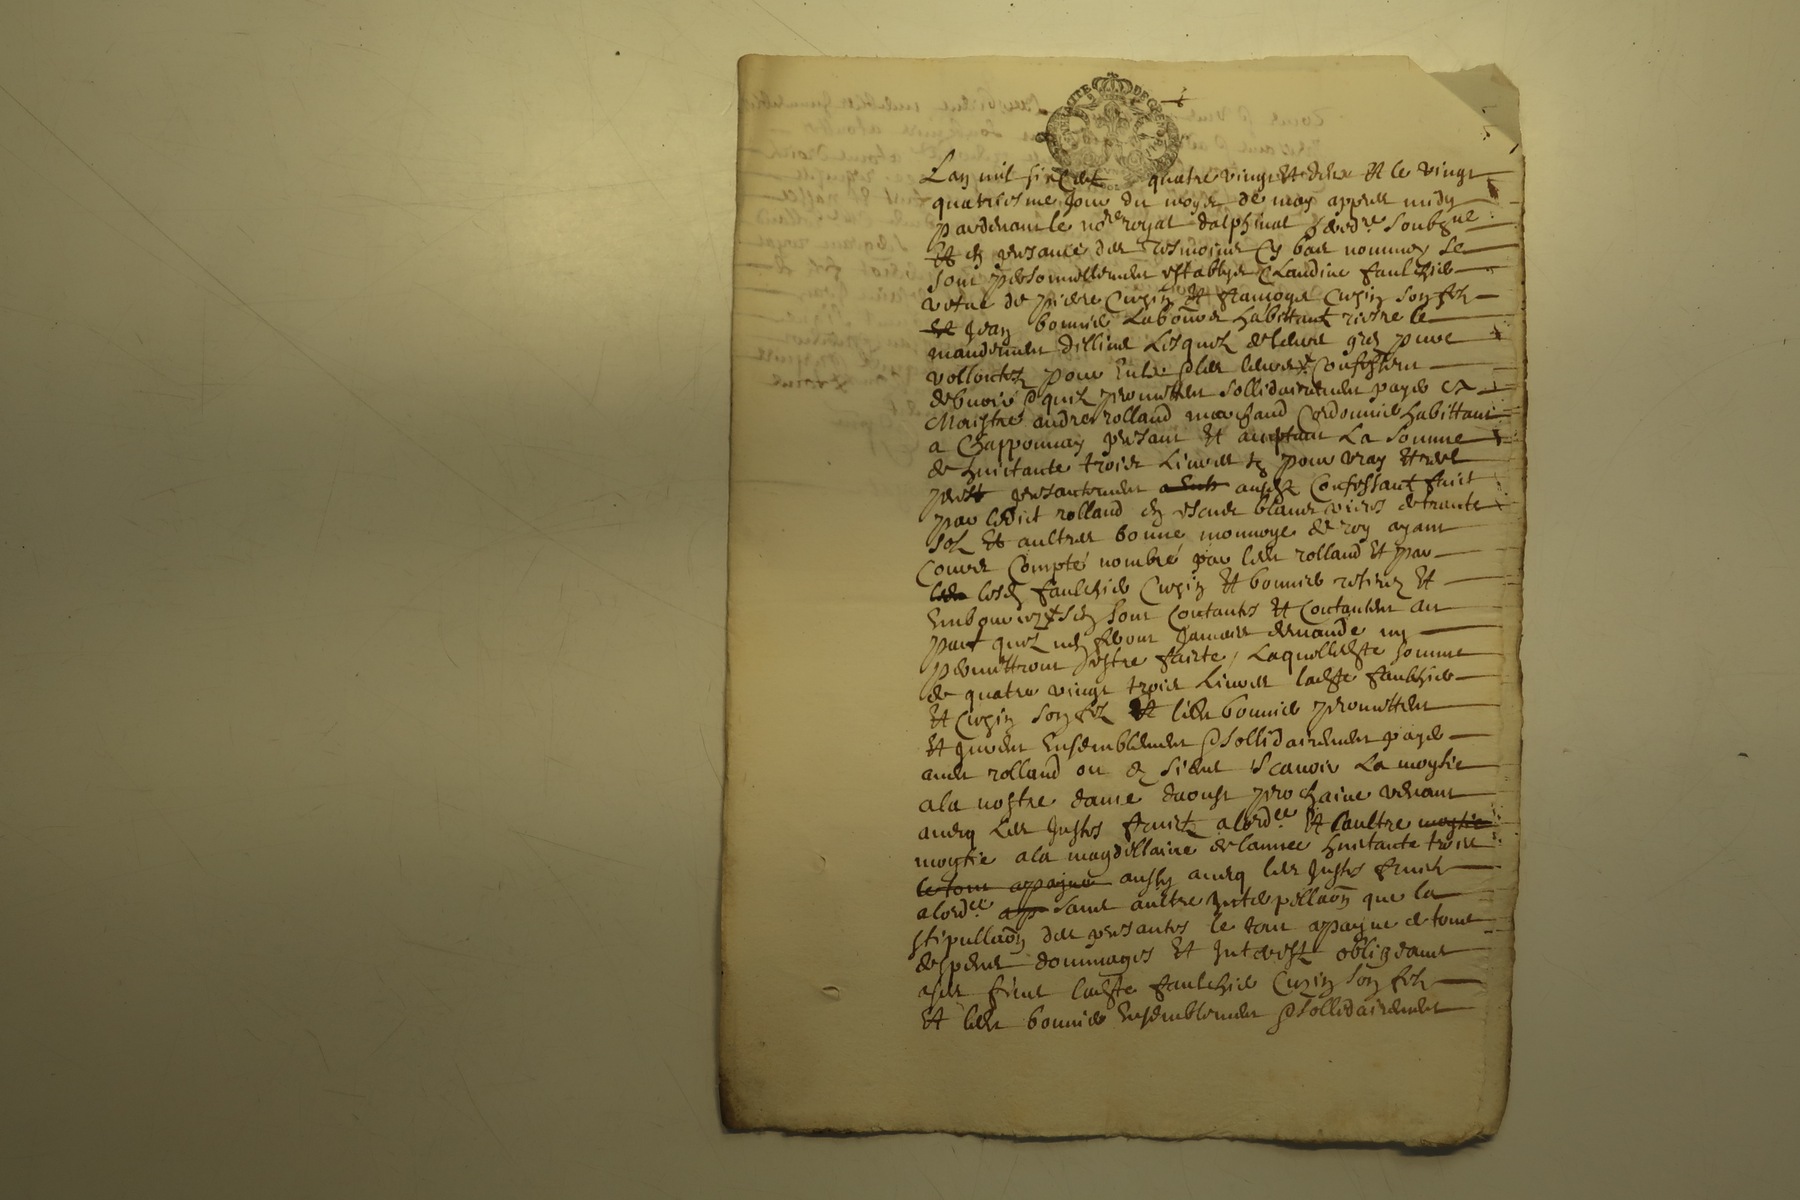 GENERALITE DE GRENOBLE
Lan mil six cent quatre vingt et deux et le vingt
quatriesme jour du moys de may appres midy
pardevant le no.re royal dalphinal hered.re soubz.né
Et en presance des tesmoins cy bas nommez se
sont personnellement establye Claudine faulchier
vefve de pierre Cuzin Et francoys Cuzin son filz
Et Jean bonnier laboureur habittant riere le
mandement dillins lesquelz de leurs grez pure
vollontez pour eulx les leurs Confessent
debvoir quilz promettent sollidairement payer a
Maistre andre rolland marchand Cordonnier habittant
a Chapponnay presant Et acceptant La somme
de huictante trois Livres tz pour vray Et reel
prest presantement au.. Confessant faict
par ledict rolland en escus blancs vieux de trante
solz Et aultres bonne monnoye de roy ayant
Cours Compté nombré par led rolland Et par
lesd faulchier Cuzin Et bonnier retirez Et
Embourcez sen sont Contantés Et Contantent au
pact quilz nen feront Jamais demande ny
permettront estre faicte, Laquelle dste somme
de quatre vingt trois Livres ladste faulchier
Et Cuzin son filz Et led bonnier promettent
Et Jurent Ensemblement sollidairement payer
aud rolland ou es siens scavoir La moytie
a la nostre dame daoust prochaine venant
avecq Les Justes fruictz a lord.ce Et laultre moytie
moytie a la magdellaine de lannee huictante trois
le tout a payne aussy avecq les Justes fruictz
a lord.ce sans aultre Interpellaôn que la
stipullaôn des presantes le tout a payne de tous
despens dommages Et Interestz obligeant
a ses fins ladste faulchier Cuzin son filz
Et led bonnier Ensemblement sollidairement